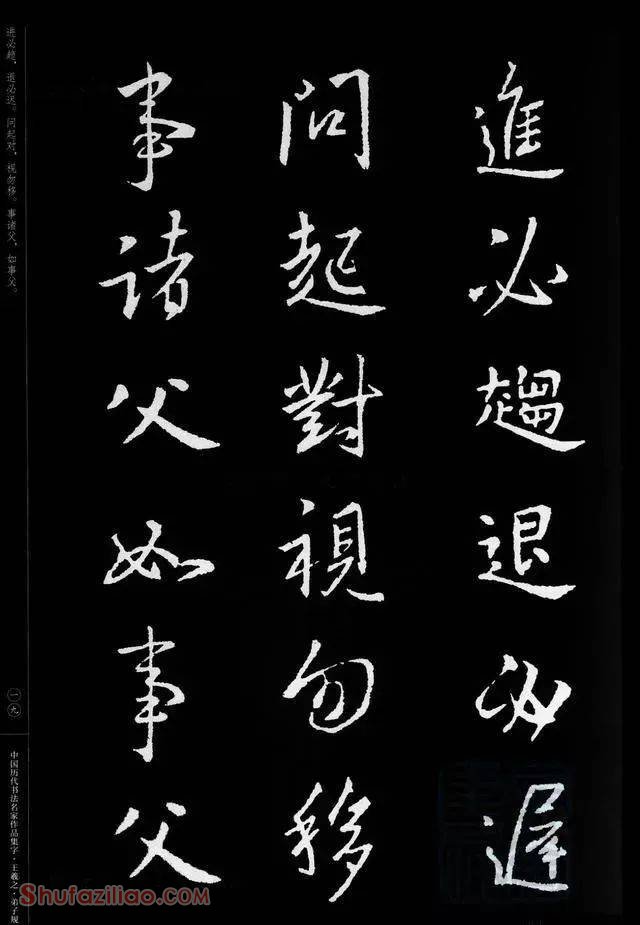 進必趨退必遲
問起對視勿移
事諸父如事父
进必趋，退必迟。问起对，视勿移。事诸父，如事父。
一九
中国历代书法名家作品集字·王羲之·弟子规
Shufaziliao.com